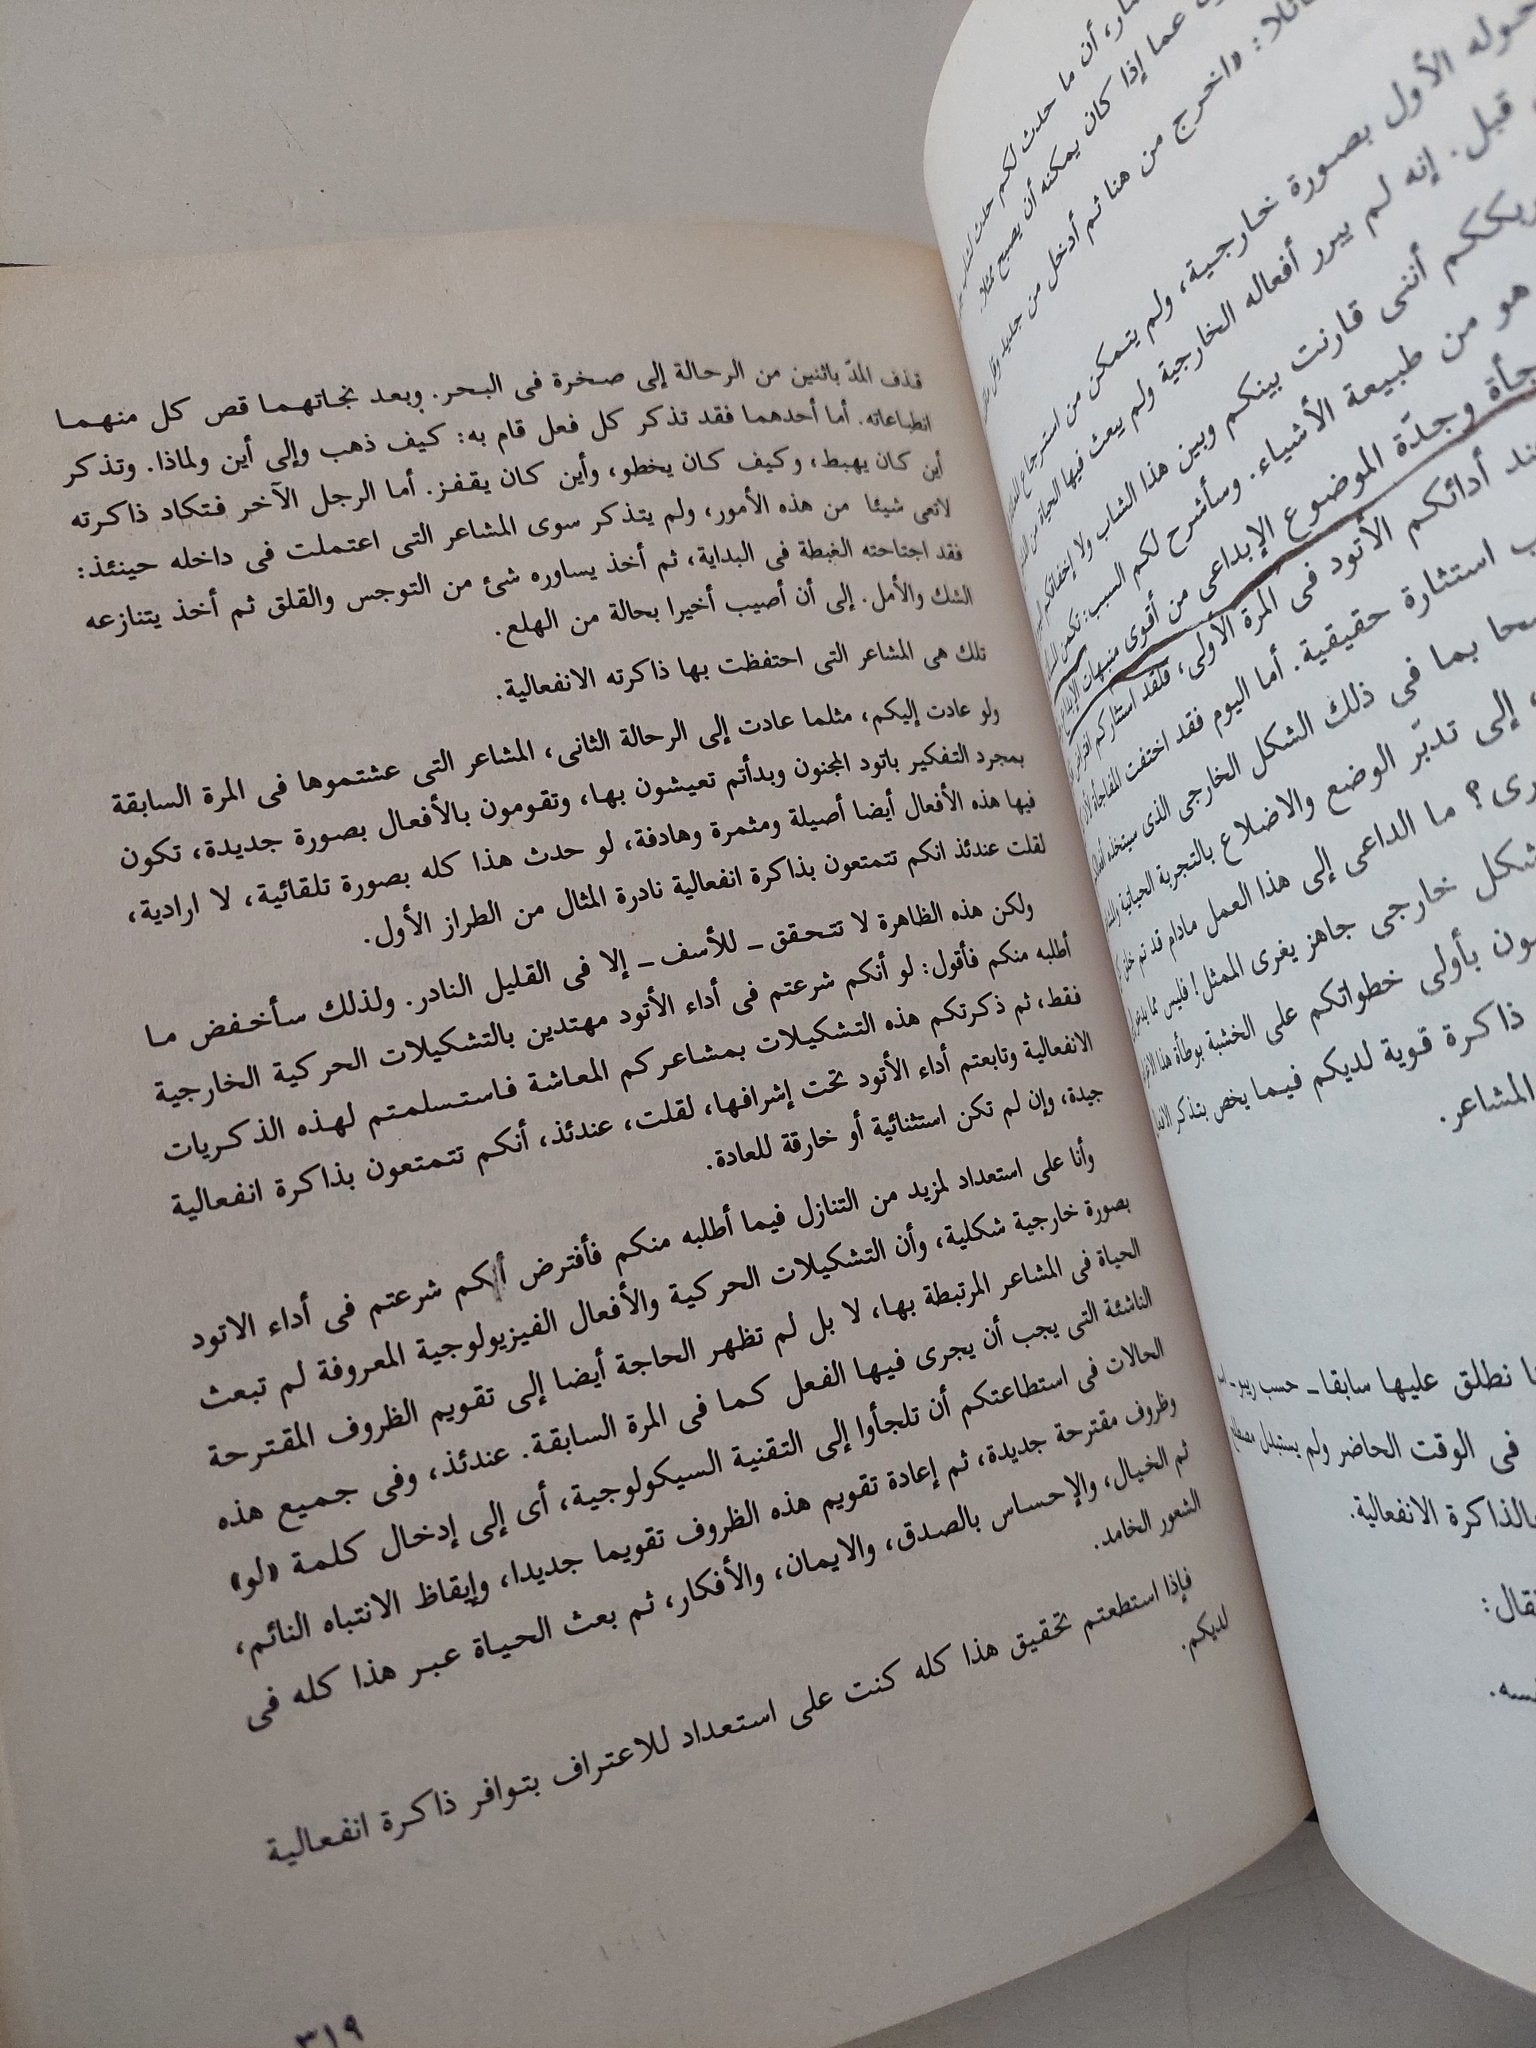 قذف المدّ باثنين من الرحالة إلى صخرة فى البحر. وبعد نجاتهما قص كل منهما
انطباعاته. أما أحدهما فقد تذكر كل فعل قام به: كيف ذهب وإلى أين ولماذا. وتذكر
أين كان يهبط، وكيف كان يخطو، وأين كان يقفز. أما الرجل الآخر فتكاد ذاكرته
لاتعى شيئا من هذه الأمور، ولم يتذكر سوى المشاعر التى اعتملت فى داخله حينئذ:
فقد اجتاحته الغبطة فى البداية، ثم أخذ يساوره شئ من التوجس والقلق ثم أخذ يتنازعه
الشك والأمل. إلى أن أصيب أخيرا بحالة من الهلع.
تلك هى المشاعر التى احتفظت بها ذاكرته الانفعالية.
ولو عادت إليكم، مثلما عادت إلى الرحالة الثانى، المشاعر التى عشتموها فى المرة السابقة
بمجرد التفكير باتود المجنون وبدأتم تعيشون بها، وتقومون بالأفعال بصورة جديدة، تكون
فيها هذه الأفعال أيضا أصيلة ومثمرة وهادفة، لو حدث هذا كله بصورة تلقائية، لا ارادية،
لقلت عندئذ انكم تتمتعون بذاكرة انفعالية نادرة المثال من الطراز الأول.
ولكن هذه الظاهرة لا تتحقق ـ للأسف ـ إلا فى القليل النادر. ولذلك سأخفض ما
أطلبه منكم فأقول: لو أنكم شرعتم فى أداء الأتود مهتدين بالتشكيلات الحركية الخارجية
فقط، ثم ذكرتكم هذه التشكيلات بمشاعركم المعاشة فاستسلمتم لهذه الذكريات
الانفعالية وتابعتم أداء الأتود تحت إشرافها، لقلت، عندئذ، أنكم تتمتعون بذاكرة انفعالية
جيدة، وإن لم تكن استثنائية أو خارقة للعادة.
وأنا على استعداد لمزيد من التنازل فيما أطلبه منكم فأفترض أنكم شرعتم فى أداء الاتود
بصورة خارجية شكلية، وأن التشكيلات الحركية والأفعال الفيزيولوجية المعروفة لم تبعث
الحياة فى المشاعر المرتبطة بها، لا بل لم تظهر الحاجة أيضا إلى تقويم الظروف المقترحة
الناشئة التى يجب أن يجرى فيها الفعل كما فى المرة السابقة. عندئذ، وفى جميع هذه
الحالات فى استطاعتكم أن تلجأوا إلى التقنية السيكولوجية، أى إلى إدخال كلمة «لو»
وظروف مقترحة جديدة، ثم إعادة تقويم هذه الظروف تقويما جديدا، وإيقاظ الانتباه النائم،
ثم الخيال، والإحساس بالصدق، والايمان، والأفكار، ثم بعث الحياة عبر هذا كله فى
الشعور الخامد.
فإذا استطعتم تحقيق هذا كله كنت على استعداد للاعتراف بتوافر ذاكرة انفعالية
لديكم.
٣١٩
أن ما حدث لكم حدث
عما إذا كان يمكنه أن يصبح ممثلا.
«اخرج من هنا ثم أدخل من جديد وقل
حوله الأول بصورة خارجية، ولم يتمكن من استرجاع
قبل. إنه لم يبرر أفعاله الخارجية ولم يبعث فيها الحياة من
أننى قارنت بينكم وبين هذا الشاب ولا
هو من طبيعة الأشياء. وسأشرح لكم السبب: تكمن
وجدّة الموضوع الإبداعى من أقوى منبهات
أدائكم الأتود فى المرة الأولى، فلقد استثاركم
استثارة حقيقية. أما اليوم فقد اختفت المفاجأة
بما فى ذلك الشكل الخارجى الذى سيتخذه
إلى تدبّر الوضع والاضلاع بالتجربة الحياتية
ما الداعى إلى هذا العمل مادام قد تم
شكل خارجى جاهز يغرى الممثل! فليس مما
بأولى خطواتكم على الخشبة بوطأة هذا
ذاكرة قوية لديكم فيما يخص بتذكر
المشاعر.
نطلق عليها سابقا ـ حسب ريبو ـ
فى الوقت الحاضر ولم يستبدل
بالذاكرة الانفعالية.